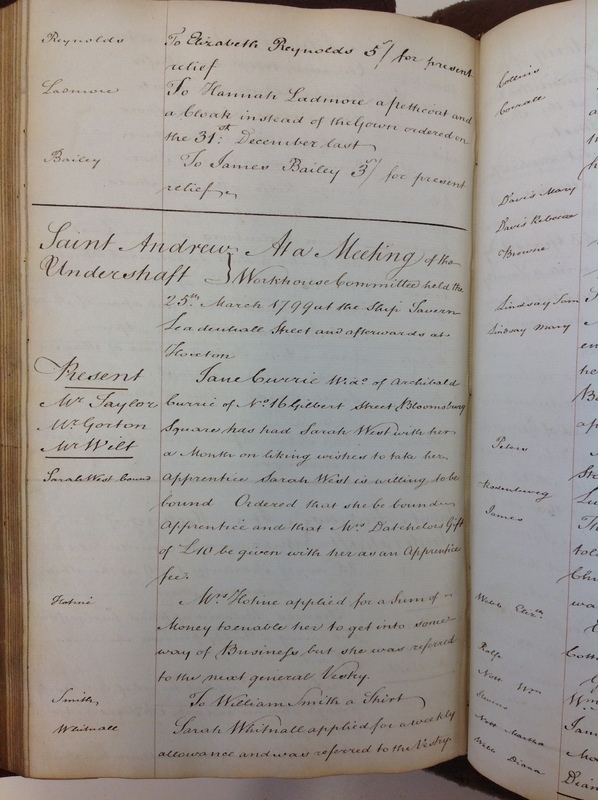 Reynolds To Elizabeth Reynolds 5/ for present
relief
Ladmore To Hannah Ladmore a petticoat and
a Cloak instead of the Gown ordered on
the 31st December last
Bailey To James Bailey 3/ for present
relief
Saint Andrew At a Meeting of the
Undershaft } Workhouse Committee held the
25th March 1799 at the Ship Tavern
Leadenhall Street and afterwards at
Hoxton
Present Jane Currie Wife of Archibald
Mr Taylor Currie of No 16 Gilbert Street Bloomsbury
Mr Gorton Square has had Sarah West with her
Mr Wilt a Month on liking wishes to take her
Sarah West bound Apprentice Sarah West is willing to be
bound Ordered that she be bound
Apprentice and that Mrs Datchelors Gift
of £10 be given with her as an Apprentice
fee.
Holme Mrs Holme applied for a Sum of
Money to enable her to get into some
way of Business but she was referred
to the next general Vestry.
Smith To William Smith a Shirt
Whitnall Sarah Whitnall applied for a weekly
allowance and was referred to the Vestry
Collins
Davis Mary
Davis Rebecca
Browne
Lindsay Sam
Lindsay Mary
Peters
Rosentweg
James
Webb Elizth
Rolfe
Nott Wm
Nott Martha
Webb Diana